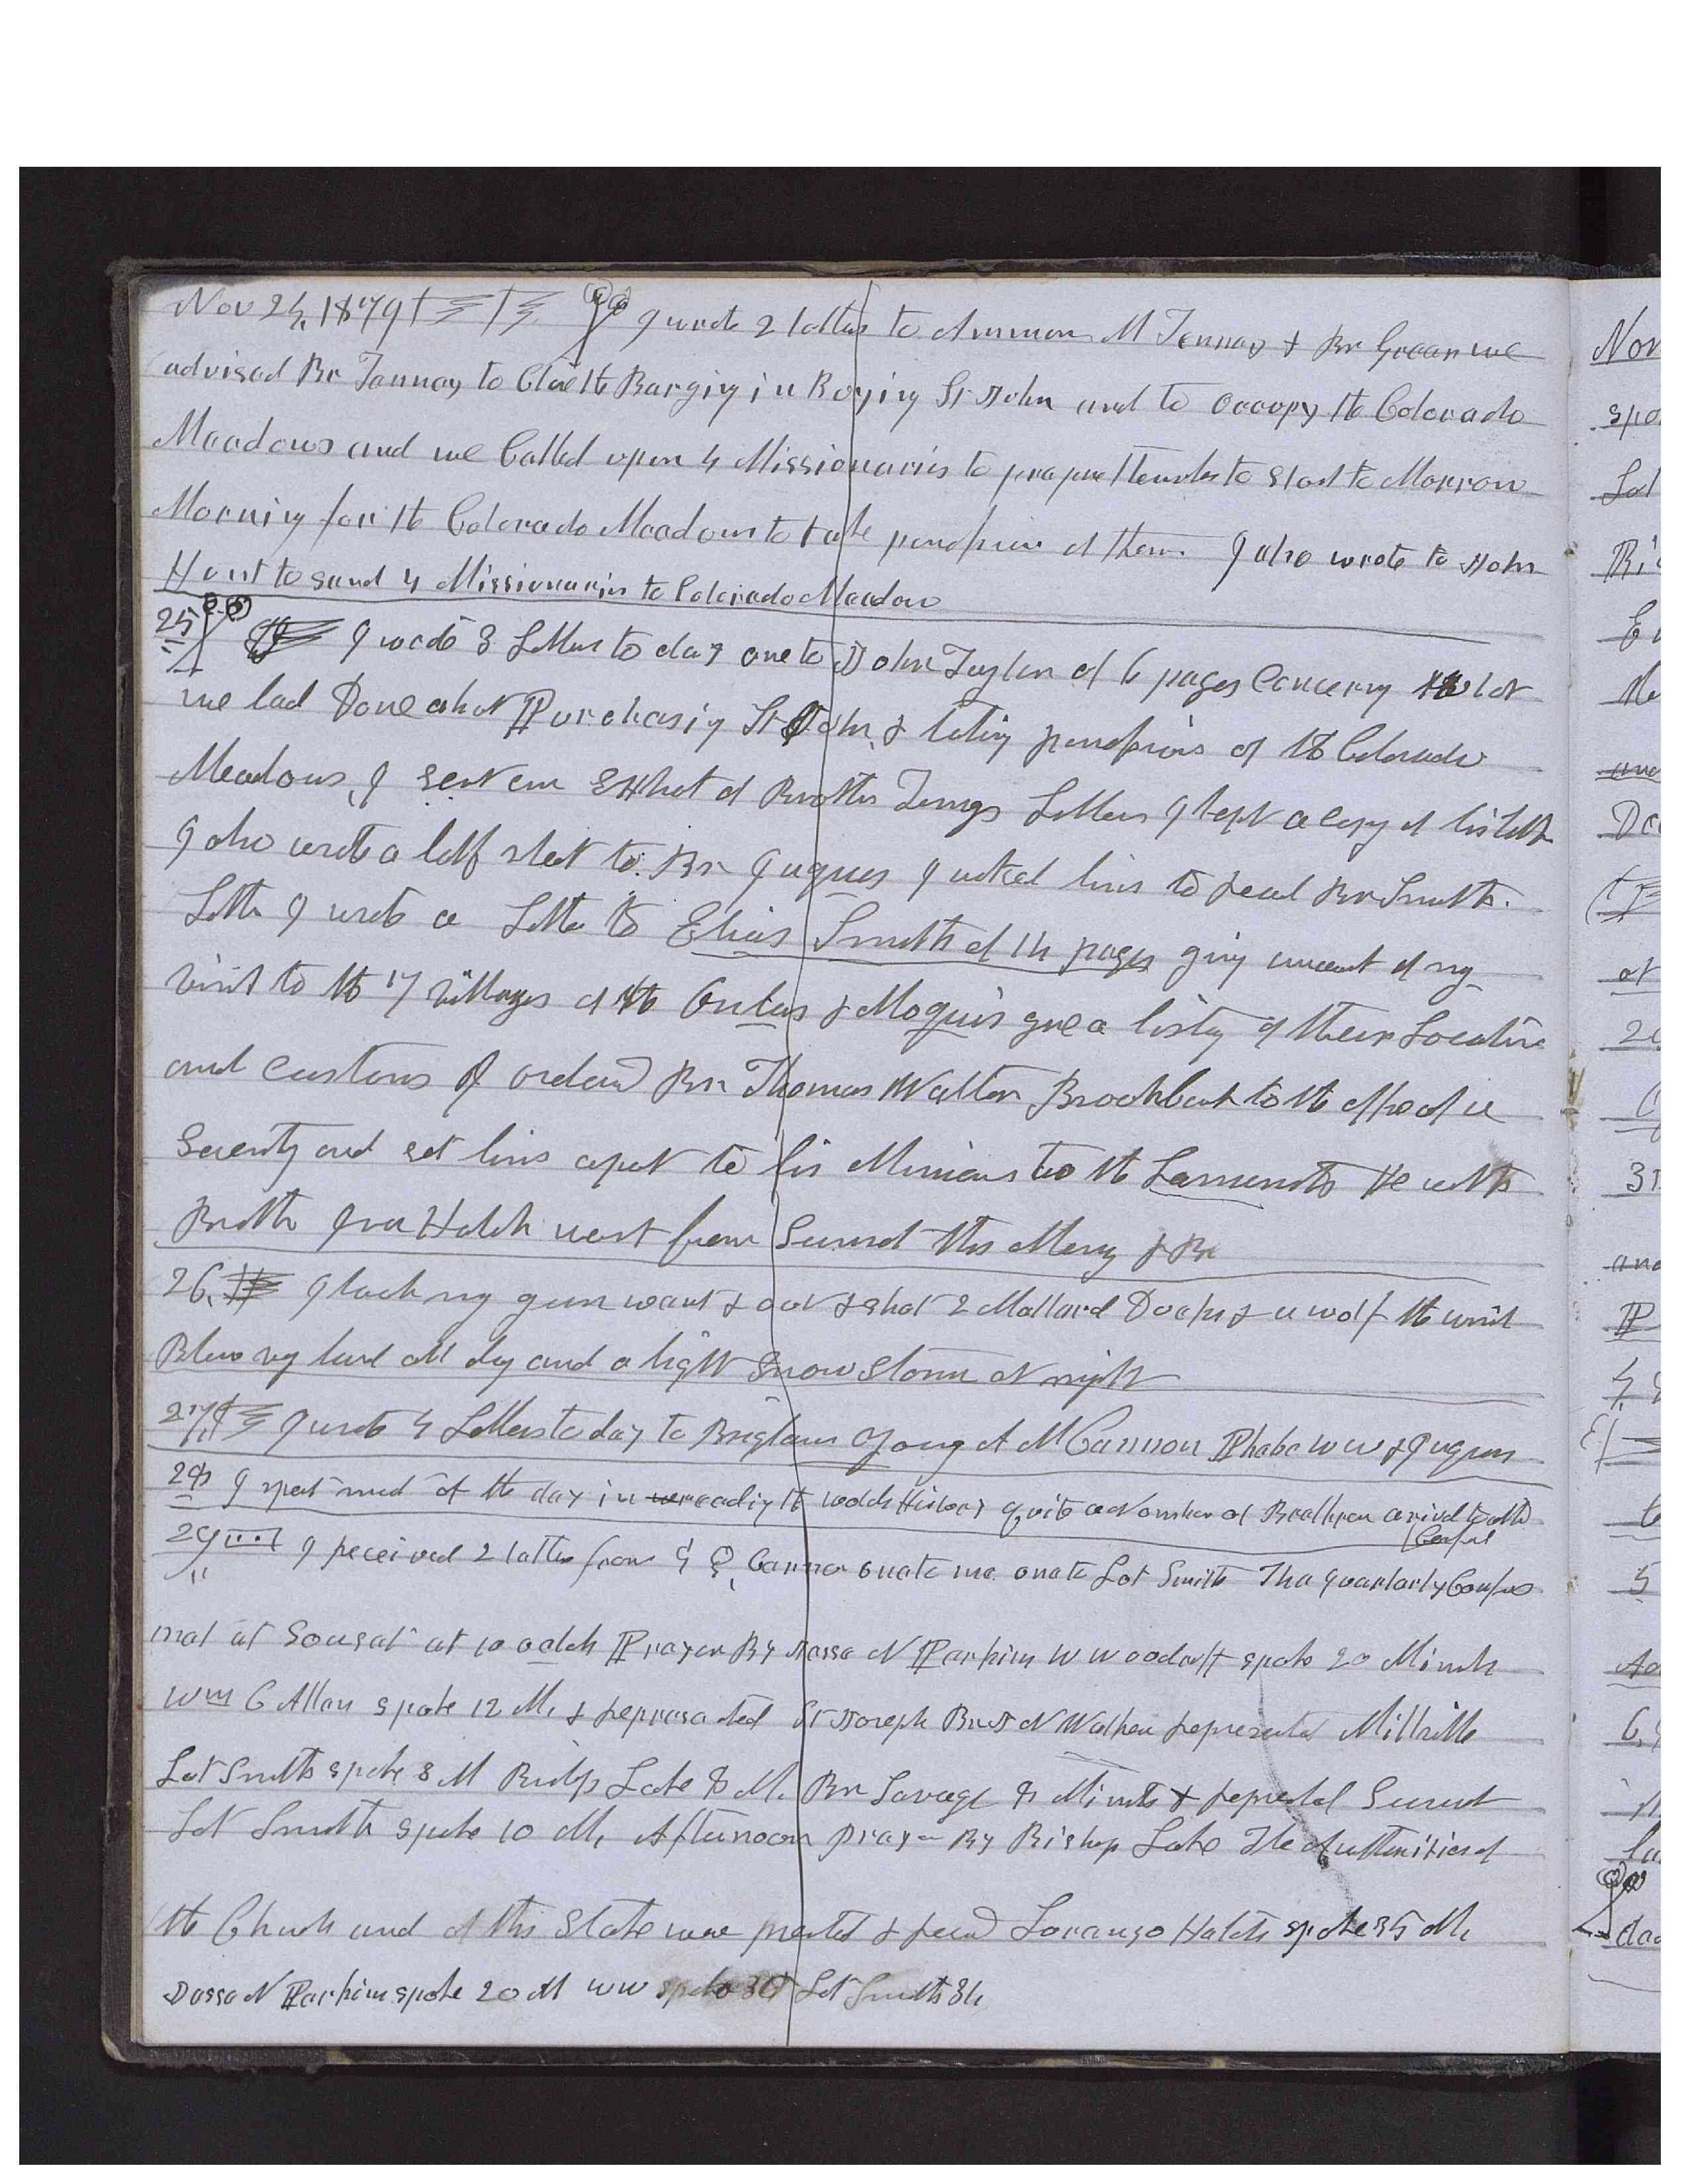 Nov 24, 1879 I wrote 2 letters to Ammon M Tennay & Br Greear we
advised Br Tannay to Close the Bargin in Buying St John and to occupy the Colorado
Meadows and we Called upon 4 Missionaries to prepare themselves to start to Morrow
Morning for the Colorado Meadows to take possession of them. I also wrote to John
Hunt to send 4 Missionaries to Colorado Meadow
25 I wrote 3 Letters to day one to John Taylor of 6 pages Concerning what
we had Done about Purchasing St John, & taking possession of the Colorado
Meadows, I sent an Extract of Brother Letters I kept a copy of his letter
I also wrote a half sheet to Br Jaques I asked him to read Br Smiths
Letter I wrote a Letter to Elias Smith of 14 pages giving account of my
visit to the 17 villages of the & Moquis gave a history of their Location
and Customs I ordaind Br Thomas Walter Brookbank to the office of a
Seventy and set him apart to his Missions to the Lamanits He with
Brother Ira Hatch went from Sunset this Morng & Br
26, I took my gun went out & shot 2 Mallard Ducks & a wolf the wind
Blew vey hard all day and a light Snow Storm at night
27, I wrote 4 Letters to day to Brigham Young A M Cannon Phebe W W & Jaques
28 I spent most of the day in reading the worlds History quite a Number of Brethren arived to atte
Confer
29 I received 2 letters from G Q Cannon one to me one to Lot Smith The Quarterly Confere
met at Sunset at 10 oclok Prayer By Jesse N Perkins W Woodruff spoke 20 Minute
Wm C Allen spoke 12 M, & represented St Joseph Br J N Walker represented Millville
Lot Smith spoke 8 M Bishop Lake 8 M. Br Savage 8 Minuts & represented Sunset
Lot Smith spoke 10 M, Afternoon prayer By Bishop Lake The Authorities of
the Church and of this State were presented & recd Loranzo Hatch spoke 35 M,
Jesse N Perkins spoke 20 M WW spoke 30 Lot Smith 34,
Nor
spo
Lot
and
at
31
and
P
5
dac